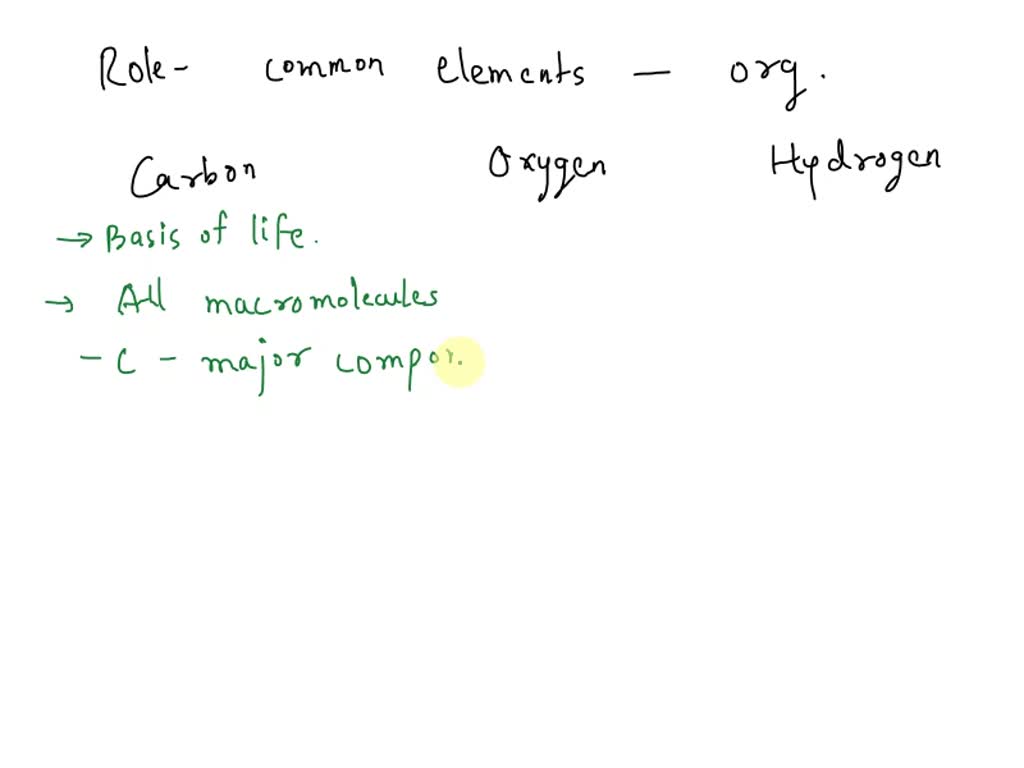 Role - common elements — org.
Carbon Oxygen Hydrogen
→ Basis of life.
→ All macromolecules
- C - major compon